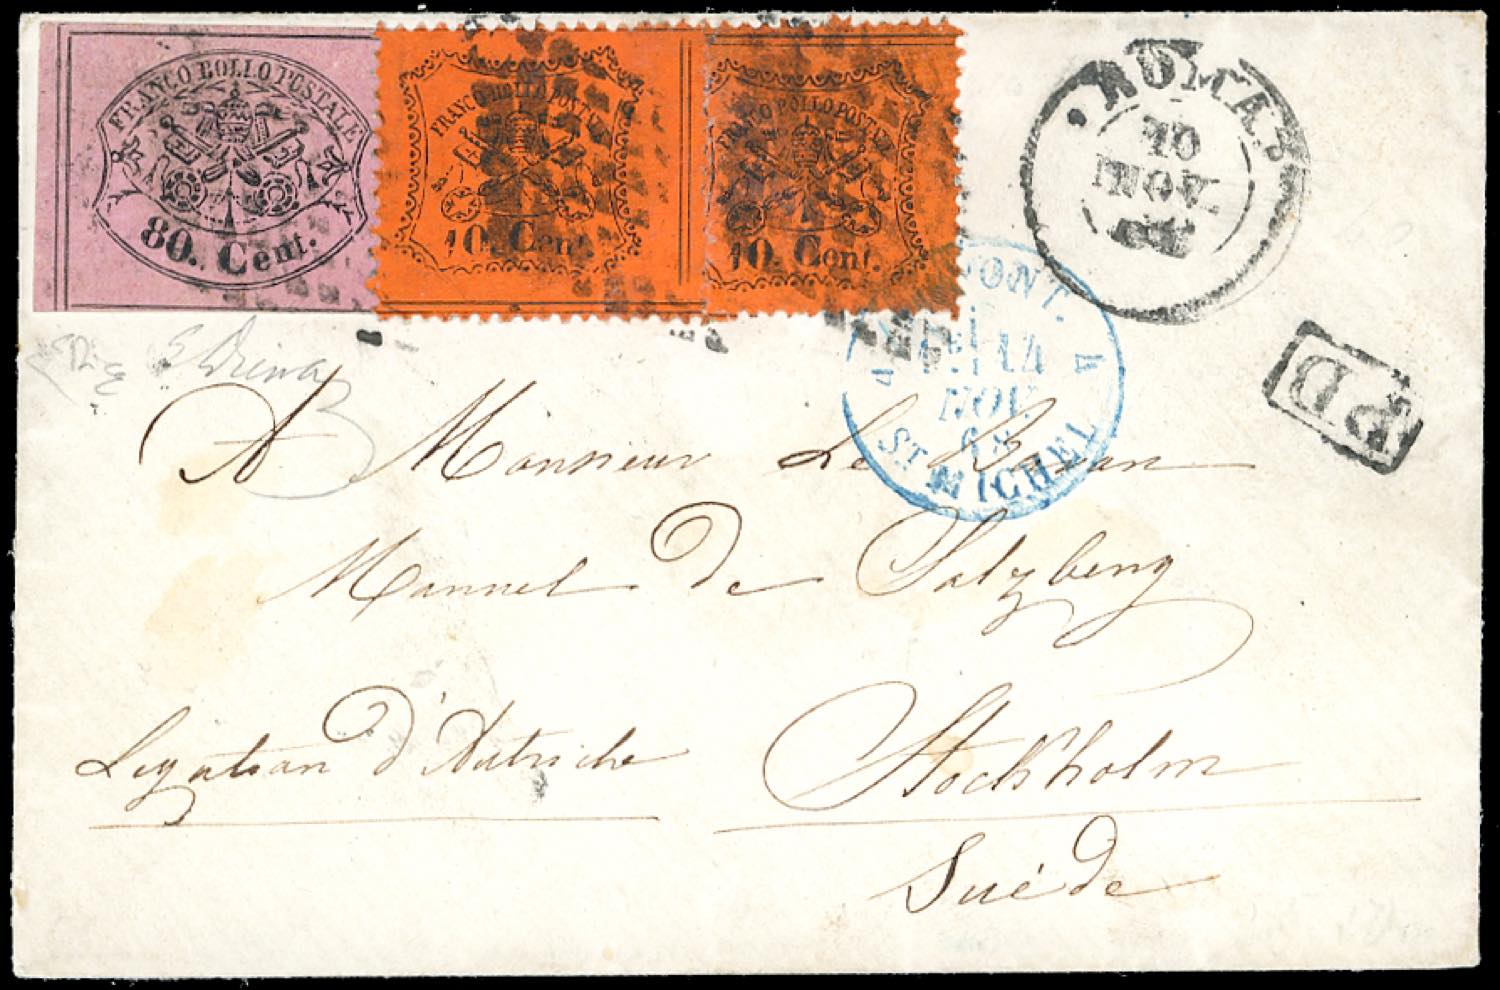 FRANCO BOLLO POSTALE
80. Cent.
FRANCO BOLLO POSTALE
10. Cent.
FRANCO BOLLO POSTALE
10. Cent.
ROMA
10
NOV
PONT.
4 4
14
NOV
68
ST MICHEL
PD
A Monsieur Le Baron
Mannel de Salzberg
Legation d'Autriche
Stockholm
Suéde